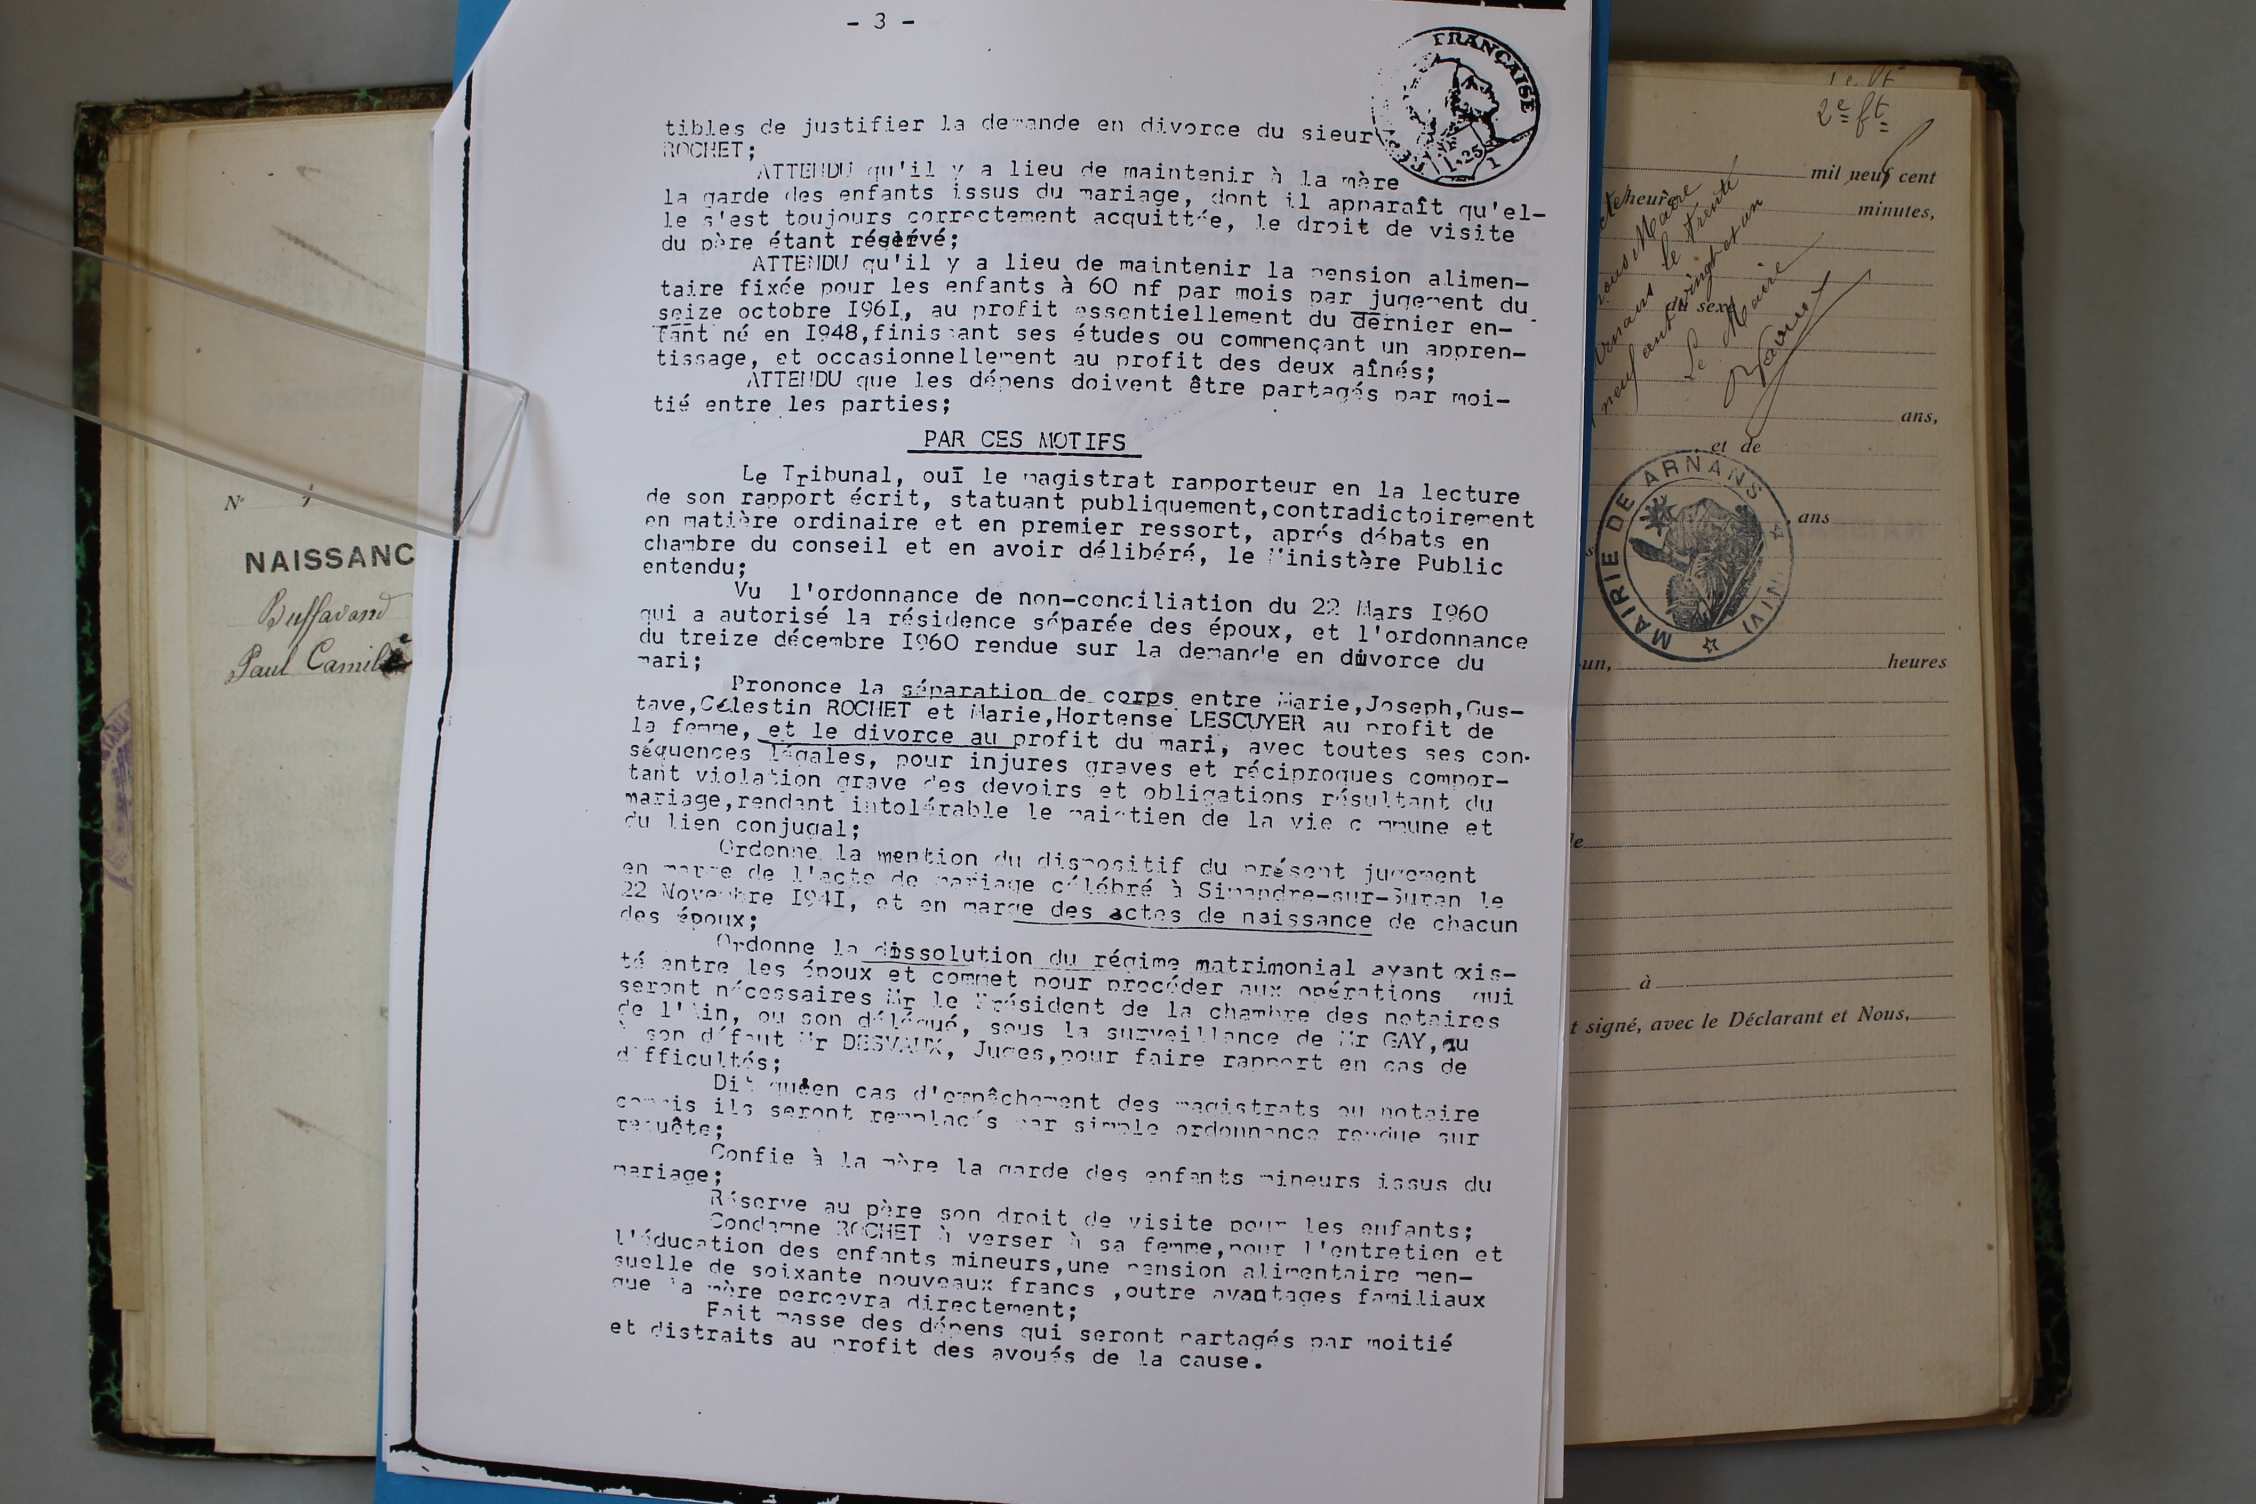 - 3 -
FRANÇAISE
1,25
1
tibles de justifier la demande en divorce du sieur
ROCHET;
ATTENDU qu'il y a lieu de maintenir à la mère
la garde des enfants issus du mariage, dont il apparaît qu'el-
le s'est toujours correctement acquittée, le droit de visite
du père étant réservé;
ATTENDU qu'il y a lieu de maintenir la pension alimen-
taire fixée pour les enfants à 60 nf par mois par jugement du
seize octobre I96I, au profit essentiellement du dernier en-
fant né en I948,finissant ses études ou commençant un appren-
tissage, et occasionnellement au profit des deux aînés;
ATTENDU que les dépens doivent être partagés par moi-
tié entre les parties;
PAR CES MOTIFS
Le Tribunal, ouï le magistrat rapporteur en la lecture
de son rapport écrit, statuant publiquement,contradictoirement
en matière ordinaire et en premier ressort, aprés débats en
chambre du conseil et en avoir délibéré, le Ministère Public
entendu;
Vu l'ordonnance de non-conciliation du 22 Mars I960
qui a autorisé la résidence séparée des époux, et l'ordonnance
du treize décembre I960 rendue sur la demande en divorce du
mari;
Prononce la séparation de corps entre Marie,Joseph,Gus-
tave,Célestin ROCHET et Marie,Hortense LESCUYER au profit de
la femme, et le divorce au profit du mari, avec toutes ses con-
séquences légales, pour injures graves et réciproques compor-
tant violation grave des devoirs et obligations résultant du
mariage,rendant intolérable le maintien de la vie commune et
du lien conjugal;
Ordonne la mention du dispositif du présent jugement
en marge de l'acte de mariage célébré à Simandre-sur-Suran le
22 Novembre I94I, et en marge des actes de naissance de chacun
des époux;
Ordonne la dissolution du régime matrimonial ayant exis-
té entre les époux et commet pour procéder aux opérations qui
seront nécessaires Mr le Président de la chambre des notaires
de l'Ain, ou son délégué, sous la surveillance de Mr GAY,ou
à son défaut Mr DESVAUX, Juges,pour faire rapport en cas de
difficultés;
Dit qu'en cas d'empêchement des magistrats ou notaire
commis ils seront remplacés par simple ordonnance rendue sur
requête;
Confie à la mère la garde des enfants mineurs issus du
mariage;
Réserve au père son droit de visite pour les enfants;
Condamne ROCHET à verser à sa femme,pour l'entretien et
l'éducation des enfants mineurs,une pension alimentaire men-
suelle de soixante nouveaux francs ,outre avantages familiaux
que la mère percevra directement;
Fait masse des dépens qui seront partagés par moitié
et distraits au profit des avoués de la cause.
N° 1
NAISSANC
Buffavand
Paul Camille
2e ft
mil neuf cent
heure
minutes,
Maire
le trente
vingt et un
Le Maire
du sexe
ans,
et de
MAIRIE DE ARNANS (AIN)
ans
un,
heures
à
t signé, avec le Déclarant et Nous,